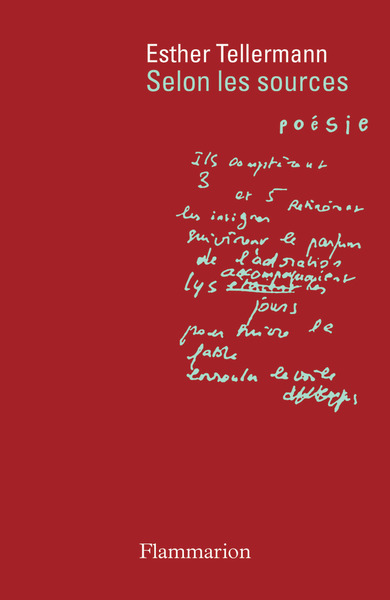 Esther Tellermann
Selon les sources
poésie
Ils comptèrent
3
et 5 Retirèrent
les insignes
suivirent le parfum
de l'adoration
accompagnaient
lys les
jours
pour suivre la
fable
enrouler le voile
Flammarion